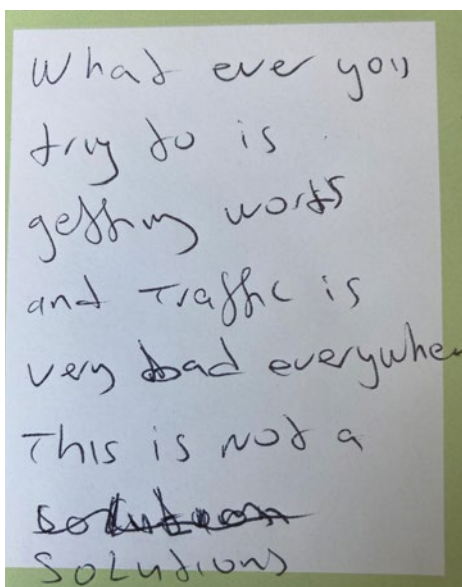 What ever you
try to is
getting worts
and Traffic is
very bad everywher
This is not a
solution
SOLUTIONS